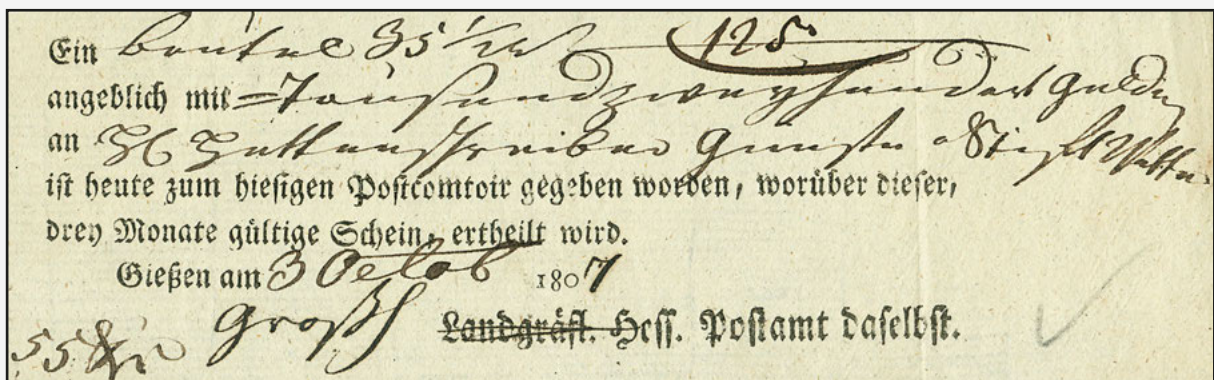 Ein Beutel 35 125
angeblich mit = Tausendzweyhundert Gulden
an Hüttenschreiber
ist heute zum hiesigen Postcomtoir gegeben worden, worüber dieser,
drey Monate gültige Schein, ertheilt wird.
Gießen am 3 Octob 1807
Großh Landgräfl. Hess. Postamt daselbst.
55